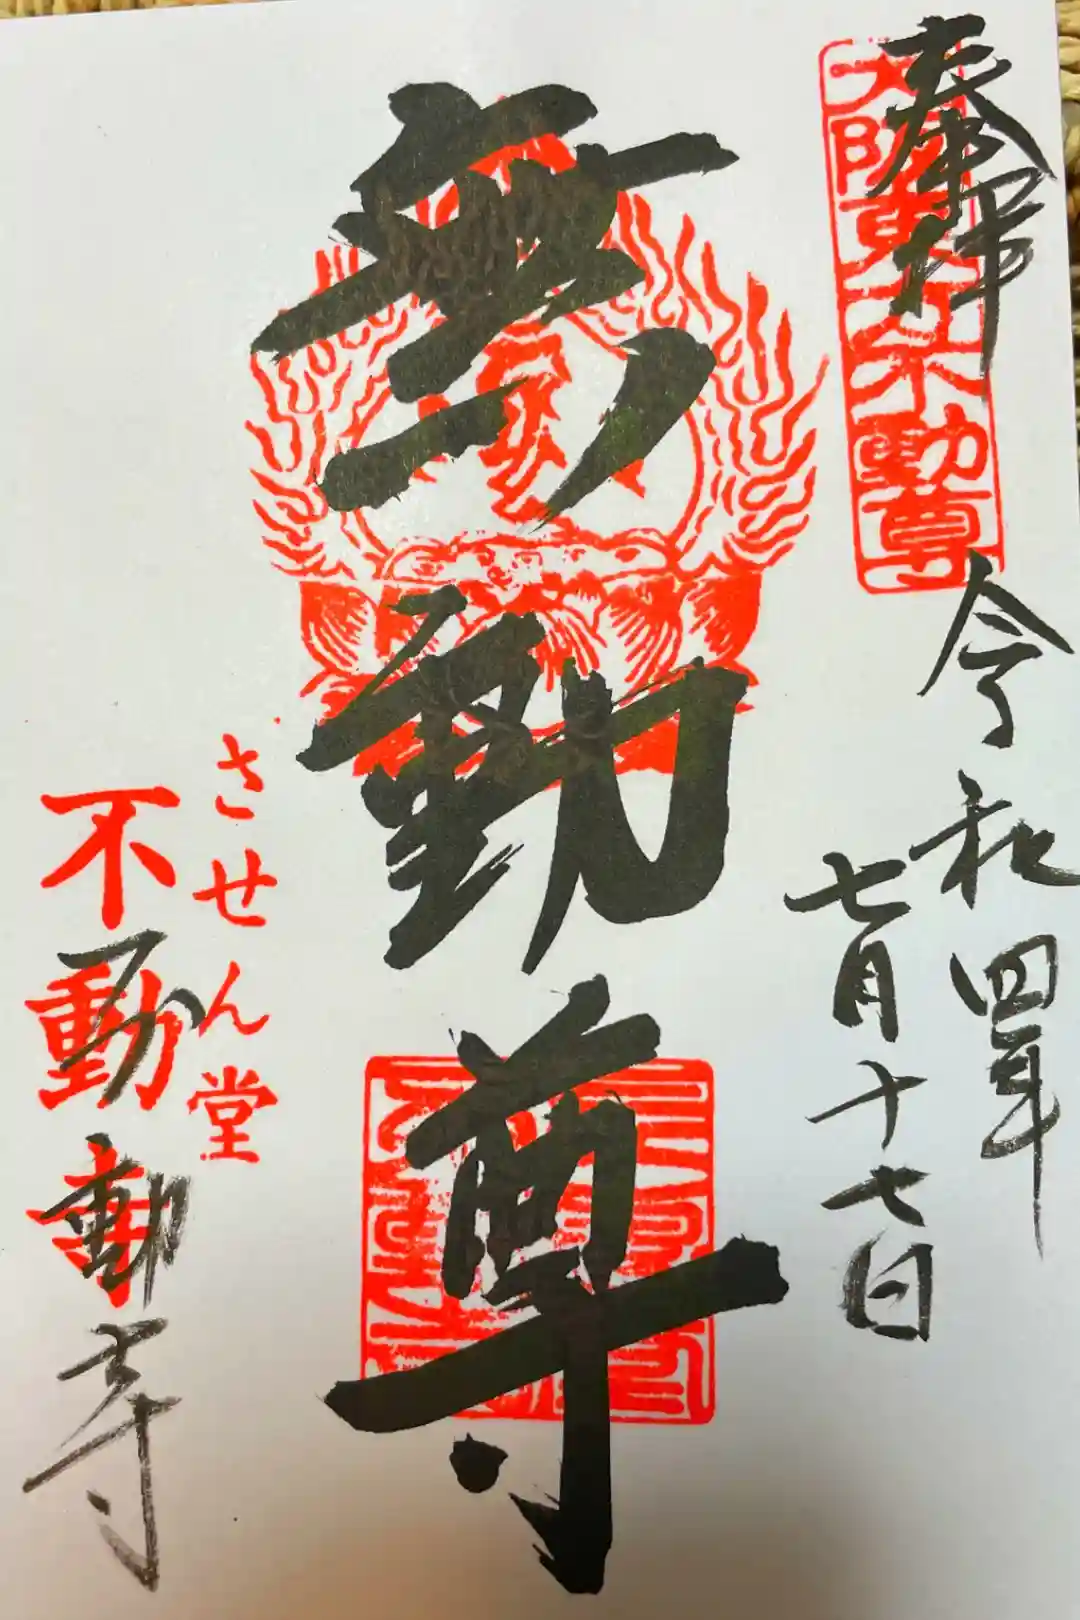 奉拝
大阪 不動尊
令和四年
七月十七日
無動尊
させん堂
不動寺
不動寺